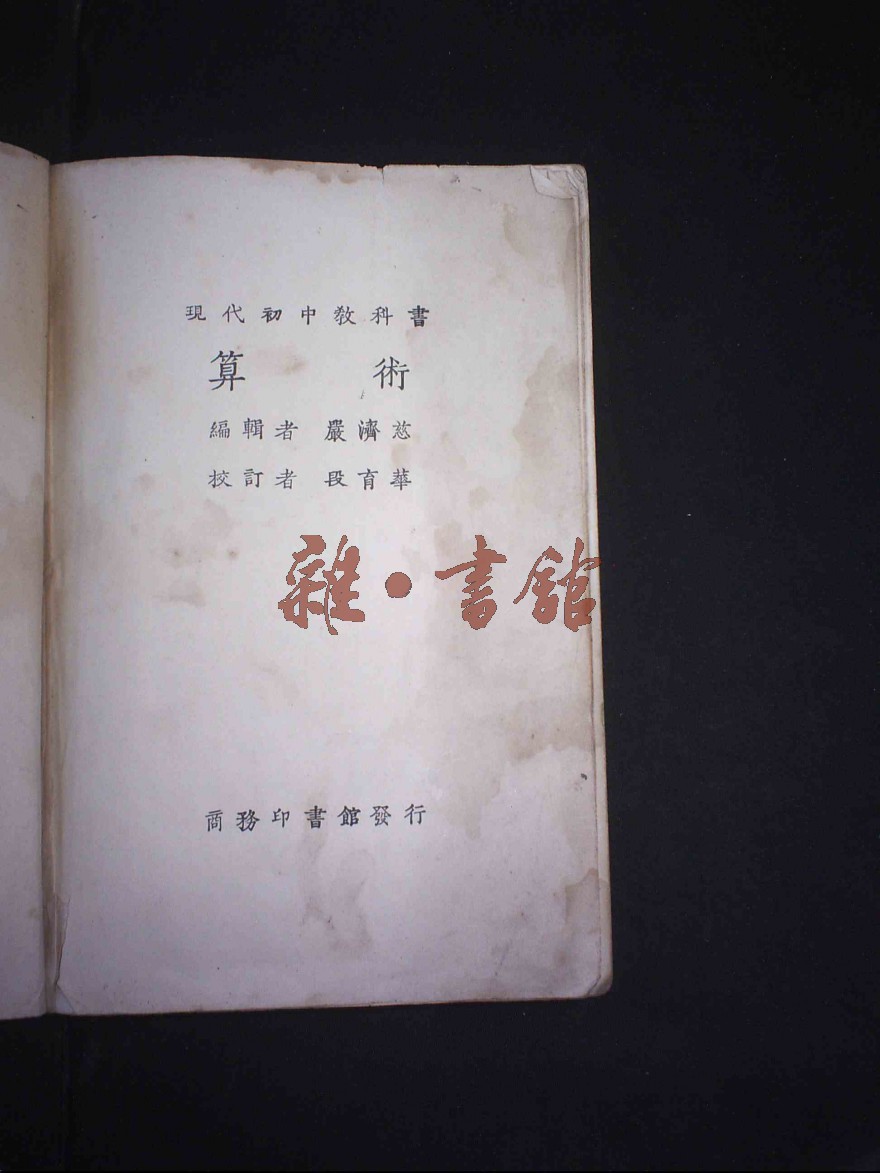 現代初中敎科書
算術
編輯者 嚴濟慈
校訂者 段育華
雜·書館
商務印書館發行